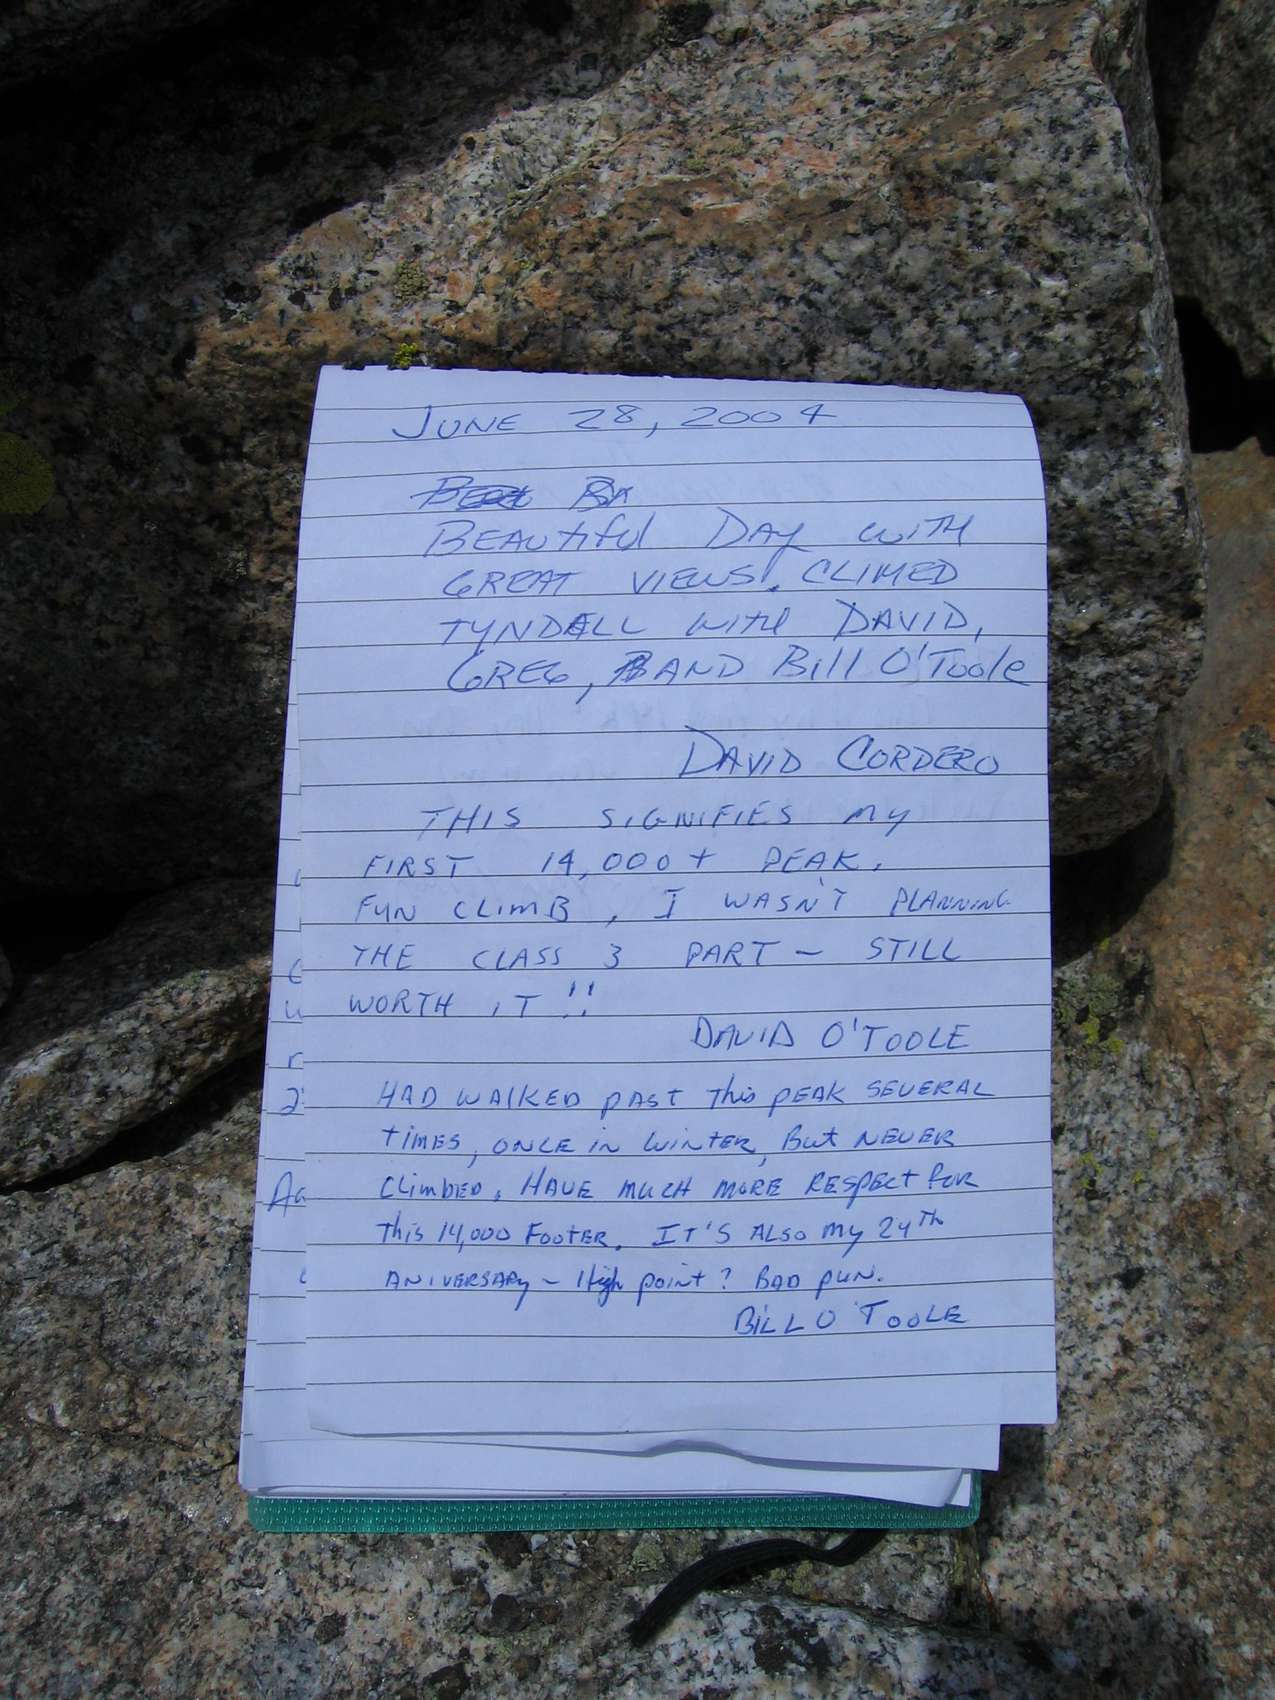 JUNE 28, 2004
BEAutiful DAY WITH
GREAT VIEWS. CLIMED
TYNDALL with DAVID,
GREG, AND Bill O'Toole
DAVID CORDERO
THIS SIGNIFIES MY
FIRST 14,000+ PEAK.
FUN CLIMB, I WASN'T PLANNING
THE CLASS 3 PART – STILL
WORTH IT!!
DAVID O'TOOLE
HAD WALKED PAST This PEAK SEVERAL
TIMES, ONCE IN WINTER, But NEVER
CLIMBED. HAVE MUCH MORE RESPECT FOR
This 14,000 FOOTER. IT'S ALSO MY 24TH
ANIVERSARY – High point? BAD PUN.
BILL O'TOOLE